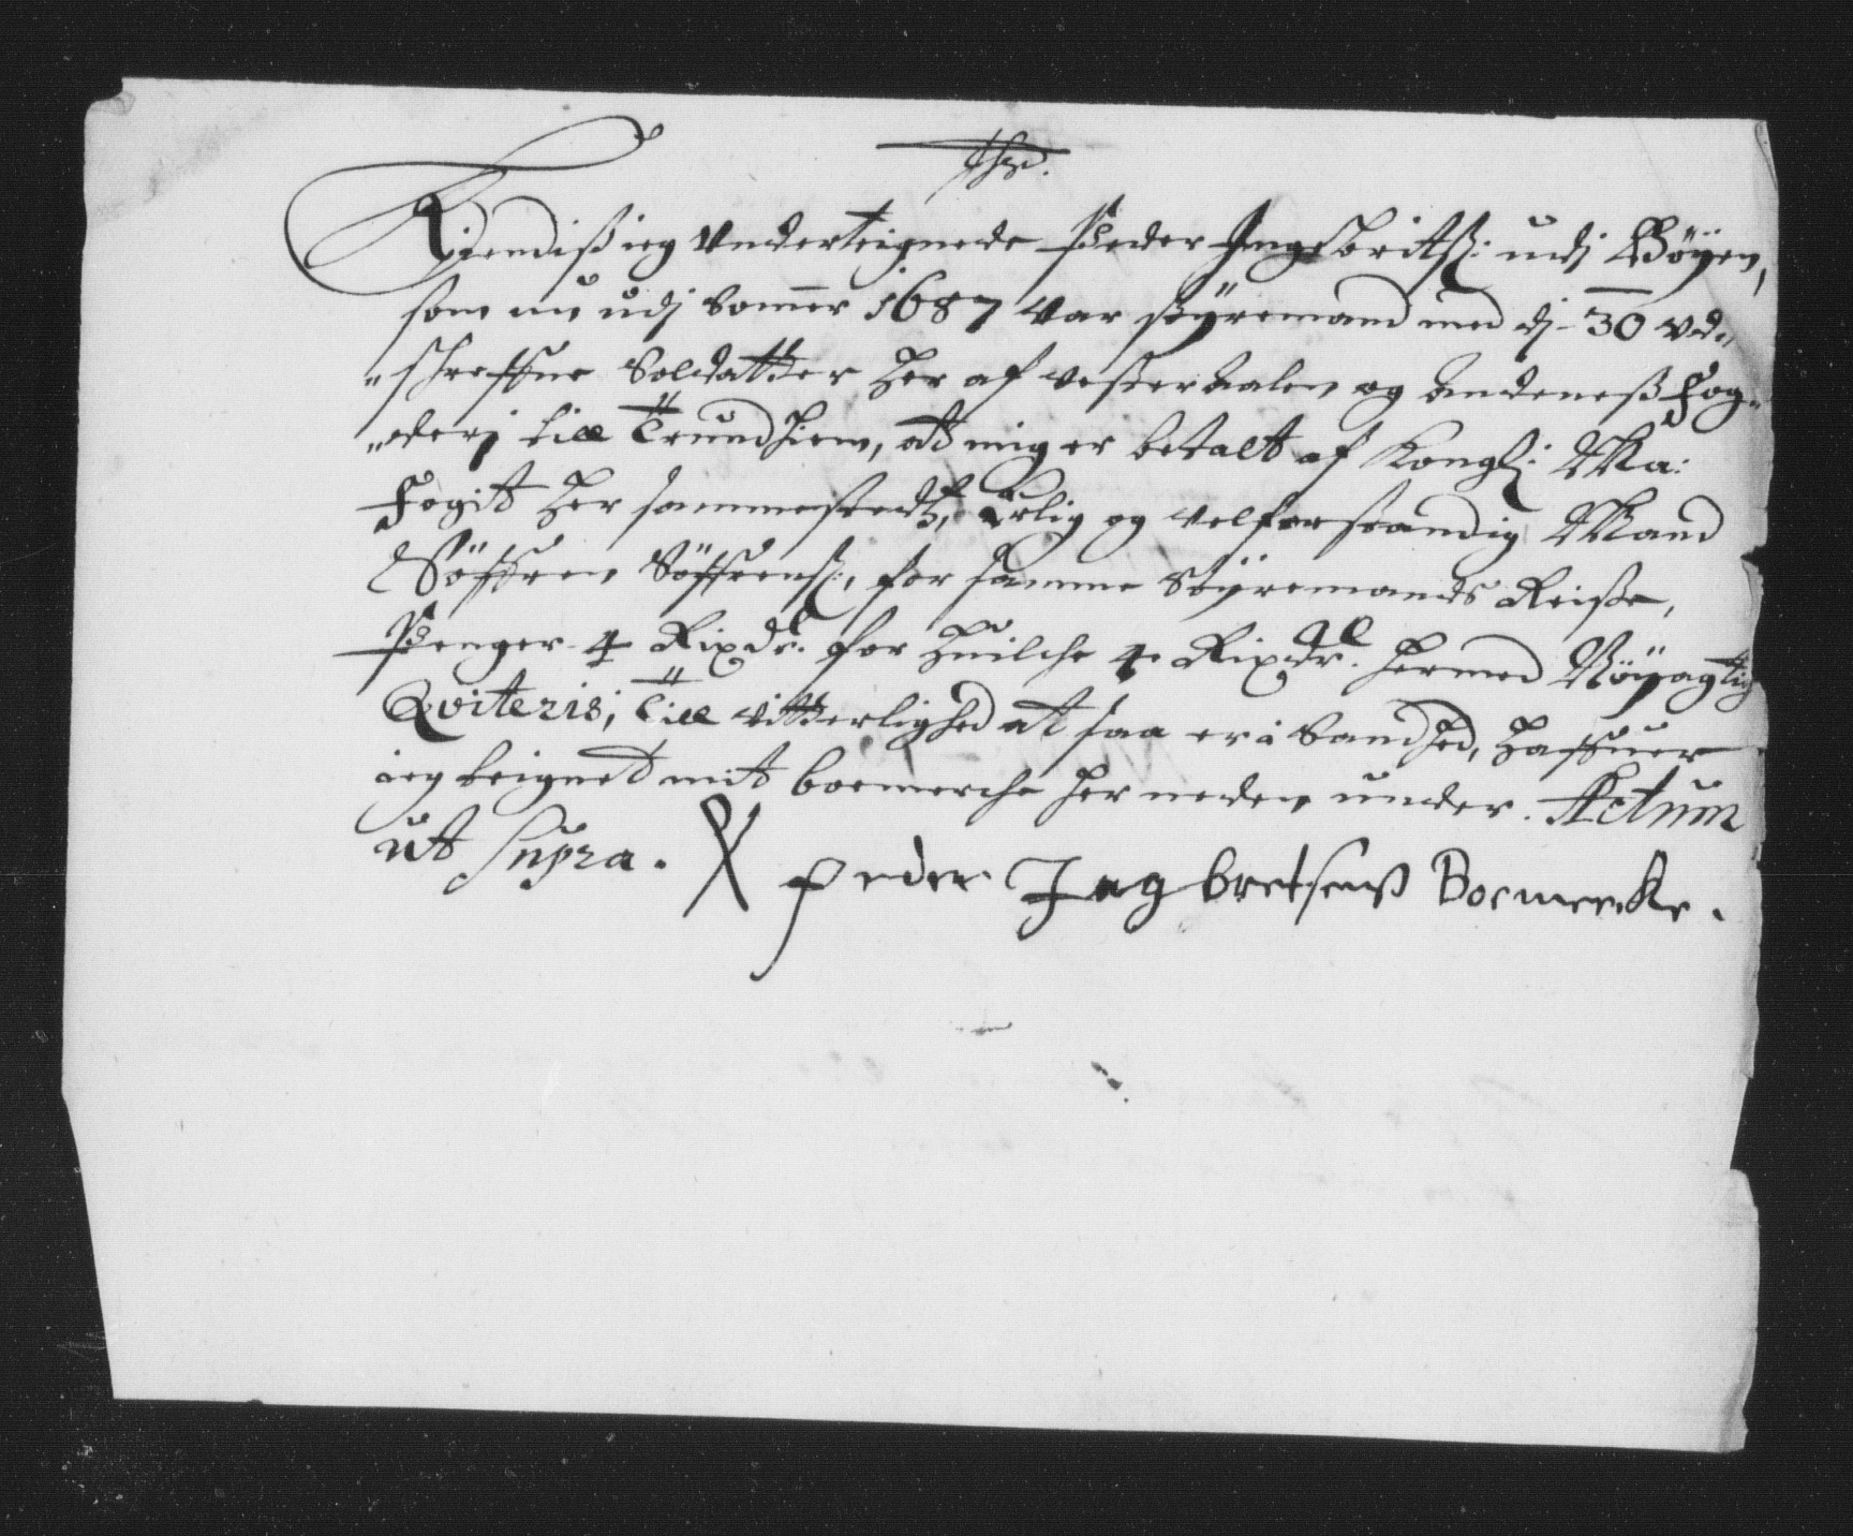 Kiendiß ieg Underteignede Peder Ingeboritß: udj Böyen,
som nu udj Som̄er 1687 war styremand med dj 30 Vd„
„schrefne Soldatter her af westeraalen og Andenes Fog„
„derj till Trundhiem, at mig er betalt af Kongl: Ma:
Fogit her sammestedtz, Ærlig og velforstandig Mand
Söffren Söffrenß:, for samme Styremands Reiße,
Penger 4 Rixdr. for huilche 4 Rixdlr. hermed Nöyagtlig
Qviteris; Till vitterlighed at saa er i Sandhed, haffuer
ieg teignet mit boemerche her neden under. Actum
ut Supra. X peder Ingbretsenß Boemerke.